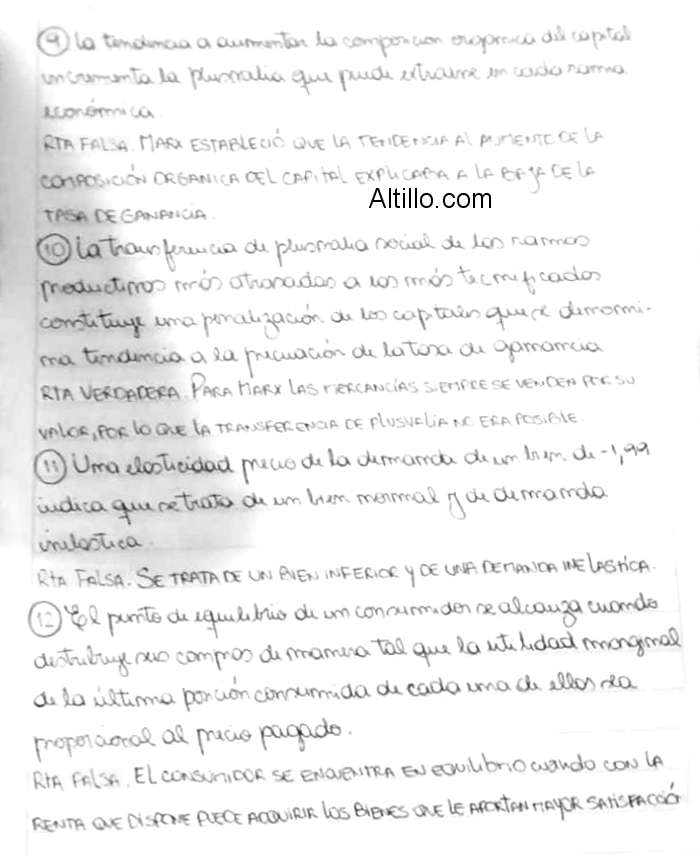 9 La tendencia a aumentar la composicion orgánica del capital
incrementa la plusvalia que puede extraerse en cada rama
económica.
RTA FALSA. MARX ESTABLECIÓ QUE LA TENDENCIA AL AUMENTO DE LA
COMPOSICIÓN ORGANICA DEL CAPITAL EXPLICABA A LA BAJA DE LA
Altillo.com
TASA DE GANANCIA.
10 La transferencia de plusvalia social de los ramos
productivos más atrasados a los más tecnificados
constituye una penalización de los capitales que se denomi-
na tendencia a la precuación de la tasa de ganancia
RTA VERDADERA. PARA MARX LAS MERCANCÍAS SIEMPRE SE VENDEN POR SU
VALOR, POR LO QUE LA TRANSFERENCIA DE PLUSVALIA NO ERA POSIBLE.
11 Una elasticidad precio de la demanda de un bien de -1,99
indica que se trata de un bien normal y de demanda
inelastica.
RTA FALSA. SE TRATA DE UN BIEN INFERIOR Y DE UNA DEMANDA INELASTICA.
12 El punto de equilibrio de un consumidor se alcanza cuando
distribuye sus compras de manera tal que la utilidad marginal
de la última porción consumida de cada una de ellas sea
proporcional al precio pagado.
RTA FALSA. EL CONSUMIDOR SE ENCUENTRA EN EQUILIBRIO CUANDO CON LA
RENTA QUE DISPONE PUEDE ADQUIRIR LOS BIENES QUE LE APORTAN MAYOR SATISFACCIÓ